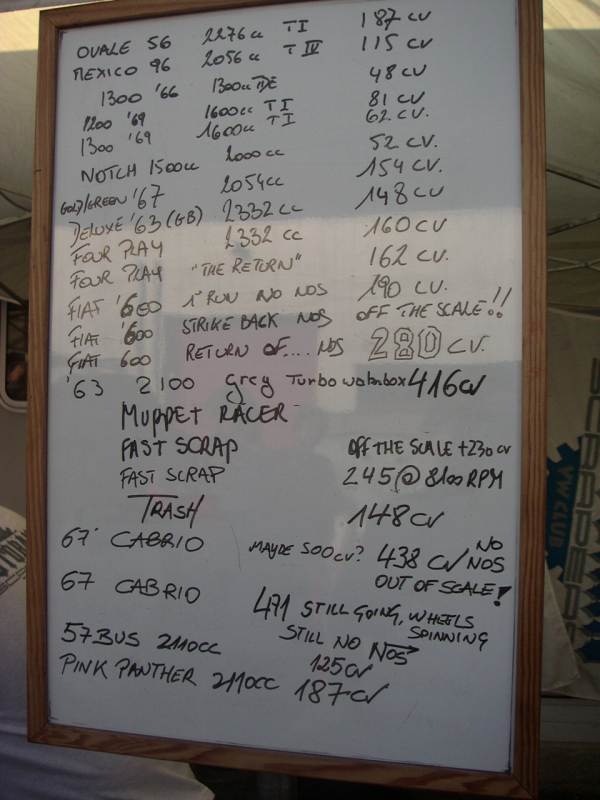 OVALE 56 2276cc TI 187 CV
MEXICO 96 2056cc T IV 115 CV
1300 '66 1300cc DE 48 CV
1200 '69 1600cc TI 81 CV
1300 '69 1600cc TI 62 CV.
NOTCH 1500cc 2000cc 52 CV.
GOLD/GREEN '67 2054cc 154 CV.
DELUXE '63 (GB) 2332 cc 148 CV
FOUR PLAY 2332 cc 160 CV
FOUR PLAY "THE RETURN" 162 CV.
FIAT '600 1° RUN NO NOS 190 CV.
FIAT '600 STRIKE BACK NOS OFF THE SCALE!!
FIAT 600 RETURN OF.... NOS 280 CV.
'63 2100 grey Turbo waterbox 416 CV
MUPPET RACER
FAST SCRAP OFF THE SCALE +230 CV
FAST SCRAP 245 @ 8100 RPM
TRASH 148 CV
67' CABRIO MAYBE 500 CV? 438 CV NO NOS
OUT OF SCALE!
67 CABRIO 471 STILL GOING, WHEELS SPINNING
STILL NO NOS
57 BUS 2110cc 125 CV
PINK PANTHER 2110cc 187 CV
SCRAPER
VW CLUB